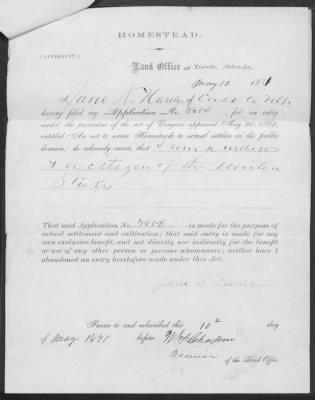 HOMESTEAD.
[AFFIDAVIT.]
Land Office at Lincoln, Nebraska,
May 10 1871
I Jane S. Hardy of Cass Co Neb
having filed my Application No. 7800, for an entry
under the provisions of the act of Congress approved May 20, 1862,
entitled "An act to secure Homesteads to actual settlers on the public
domain," do solemnly swear, that I am a widow
& a citizen of the United
States
That said Application No. 7800 is made for the purpose of
actual settlement and cultivation; that said entry is made for my
own exclusive benefit, and not directly nor indirectly for the benefit
or use of any other person or persons whomsoever; neither have I
abandoned an entry heretofore made under this Act.
Jane S. Hardy
Sworn to and subscribed this 10th day
of May 1871 before
Receiver of the Land Office